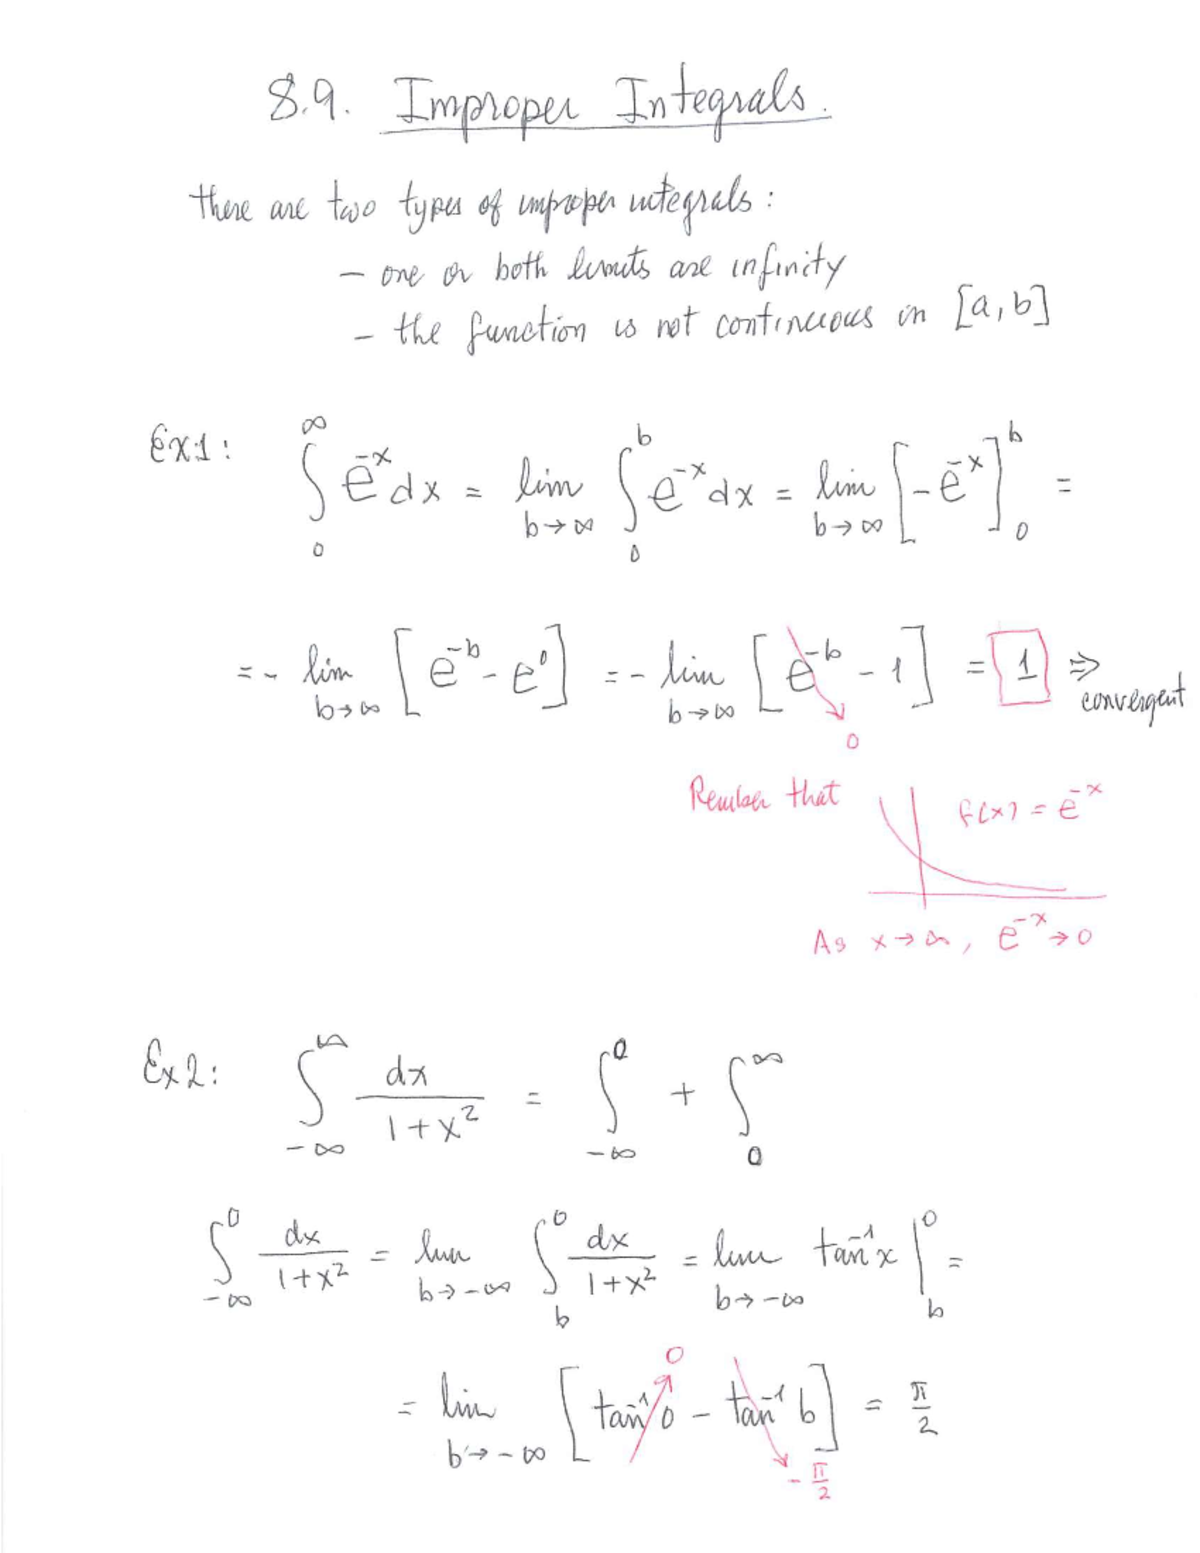 8.9. Improper Integrals.
there are two types of improper integrals:
- one or both limits are infinity
- the function is not continuous in [a, b]
Ex1: ∫₀^∞ e^{-x} dx = lim_{b→∞} ∫₀^b e^{-x} dx = lim_{b→∞} [-e^{-x}]₀^b =
= - lim_{b→∞} [e^{-b} - e^0] = - lim_{b→∞} [e^{-b} - 1] = 1 ⇒ convergent
0
Remeber that f(x) = e^{-x}
As x→∞, e^{-x}→0
Ex2: ∫_{-∞}^∞ dx/(1+x²) = ∫_{-∞}^0 + ∫₀^∞
∫_{-∞}^0 dx/(1+x²) = lim_{b→-∞} ∫_b^0 dx/(1+x²) = lim_{b→-∞} tan^{-1}x |_b^0 =
0
= lim_{b→-∞} [tan^{-1} 0 - tan^{-1} b] = π/2
-π/2